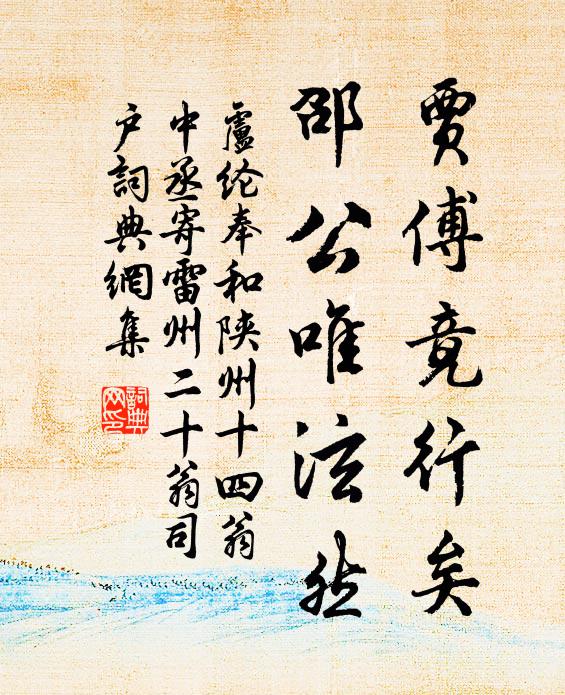 賈傅竟行矣
邵公唯泫然
盧纶奉和陕州十四翁
中丞寄雷州二十翁司
户詞典網集
詞典
网印